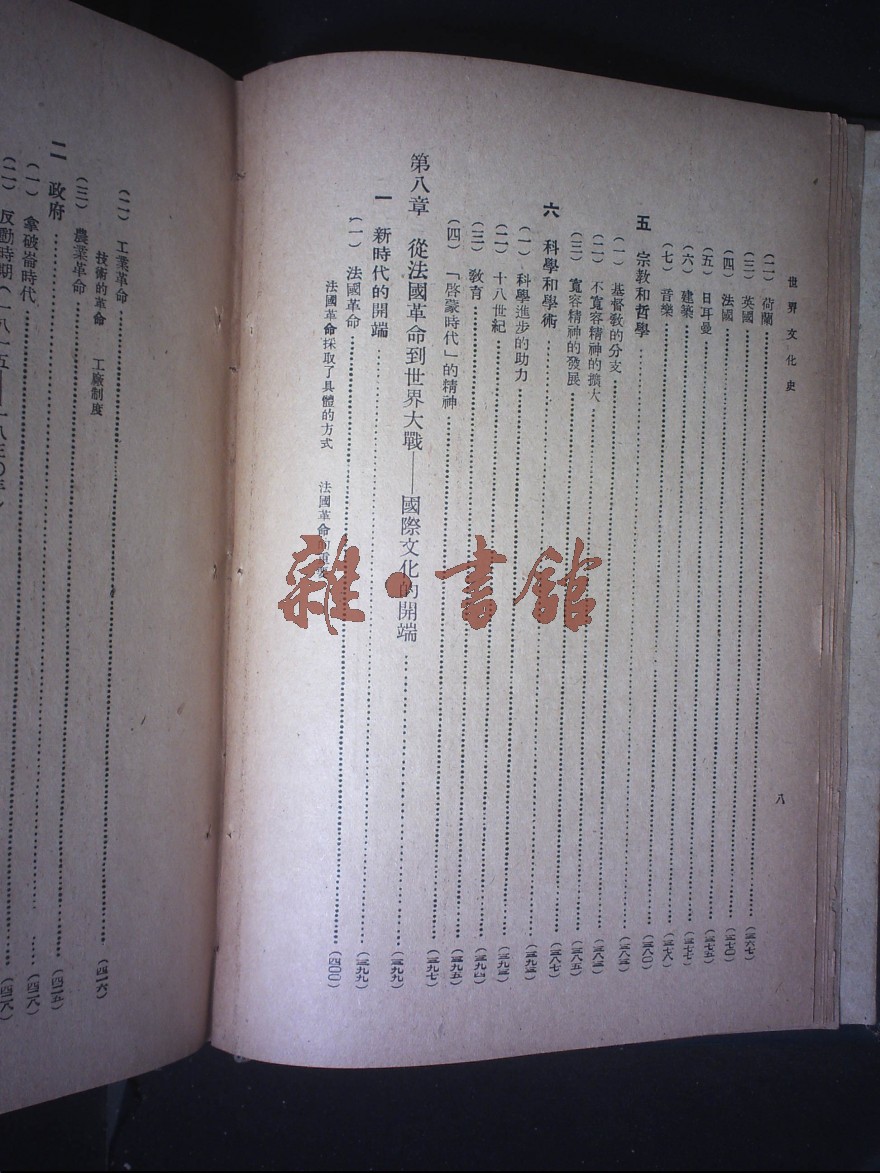 世界文化史
八
(二) 荷蘭……(三六七)
(三) 英國……(三七〇)
(四) 法國……(三七五)
(五) 日耳曼……(三七七)
(六) 建築……(三七八)
(七) 音樂……(三八〇)
五 宗教和哲學……(三八二)
(一) 基督教的分支……(三八三)
(二) 不寬容精神的擴大……(三八五)
(三) 寬容精神的發展……(三八七)
六 科學和學術……(三九二)
(一) 科學進步的助力……(三九三)
(二) 十八世紀……(三九四)
(三) 教育……(三九五)
(四) 「啓蒙時代」的精神……(三九七)
第八章 從法國革命到世界大戰——國際文化的開端……(三九九)
一 新時代的開端……(三九九)
(一) 法國革命……(四〇〇)
法國革命採取了具體的方式 法國革命的重要
(二) 工業革命……(四一六)
技術的革命 工廠制度
(三) 農業革命……(四二五)
二 政府……(四二八)
(一) 拿破崙時代……(四二八)
(二) 反動時期(一八一五——一八三〇年)
雜·書館